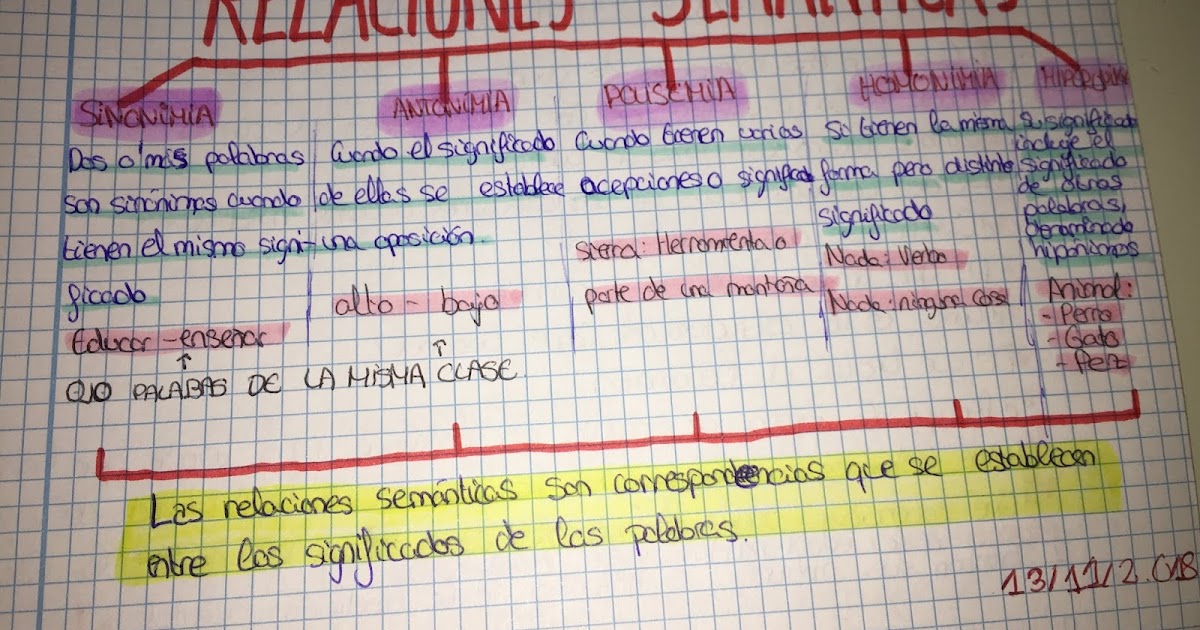 RELACIONES SEMÁNTICAS
SINONIMIA
Dos o más palabras
son sinónimas cuando
tienen el mismo signi-
ficado
Educar - enseñar
ANTONIMIA
Cuando el significado
de ellas se establece
una oposición.
alto - bajo
OJO PALABAS DE LA MISMA CLASE
POLISEMIA
Cuando tienen varias
acepciones o significad
Sierra: Herramienta o
parte de una montaña
HOMONIMIA
Si tienen la misma
forma pero distinto
significado
Nada: Verbo
Nada: ninguna cosa
Su significado
incluye el
significado
de otras
palabras,
denominado
hipónimos
Animal:
- Perro
- Gato
- Pez
Las relaciones semánticas son correspondencias que se establecen
entre los significados de las palabras.
13/11/2.018